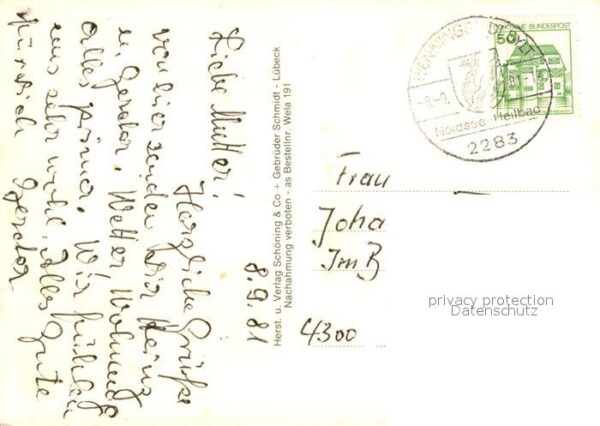 8.9.81
Liebe Mutter!
Herzliche Grüße
von hier senden Dir Heinz
u. Gerda. Wetter Wohnung
alles prima. Wir fühlen
uns sehr wohl. Alles Gute
für dich Gerda
Herst. u. Verlag Schöning & Co + Gebrüder Schmidt - Lübeck
Nachahmung verboten - as Bestellnr. Wela 191
DEUTSCHE BUNDESPOST
50
Nordsee-Heilbad
2283
Frau
Joha
Im B
4300
privacy protection
Datenschutz